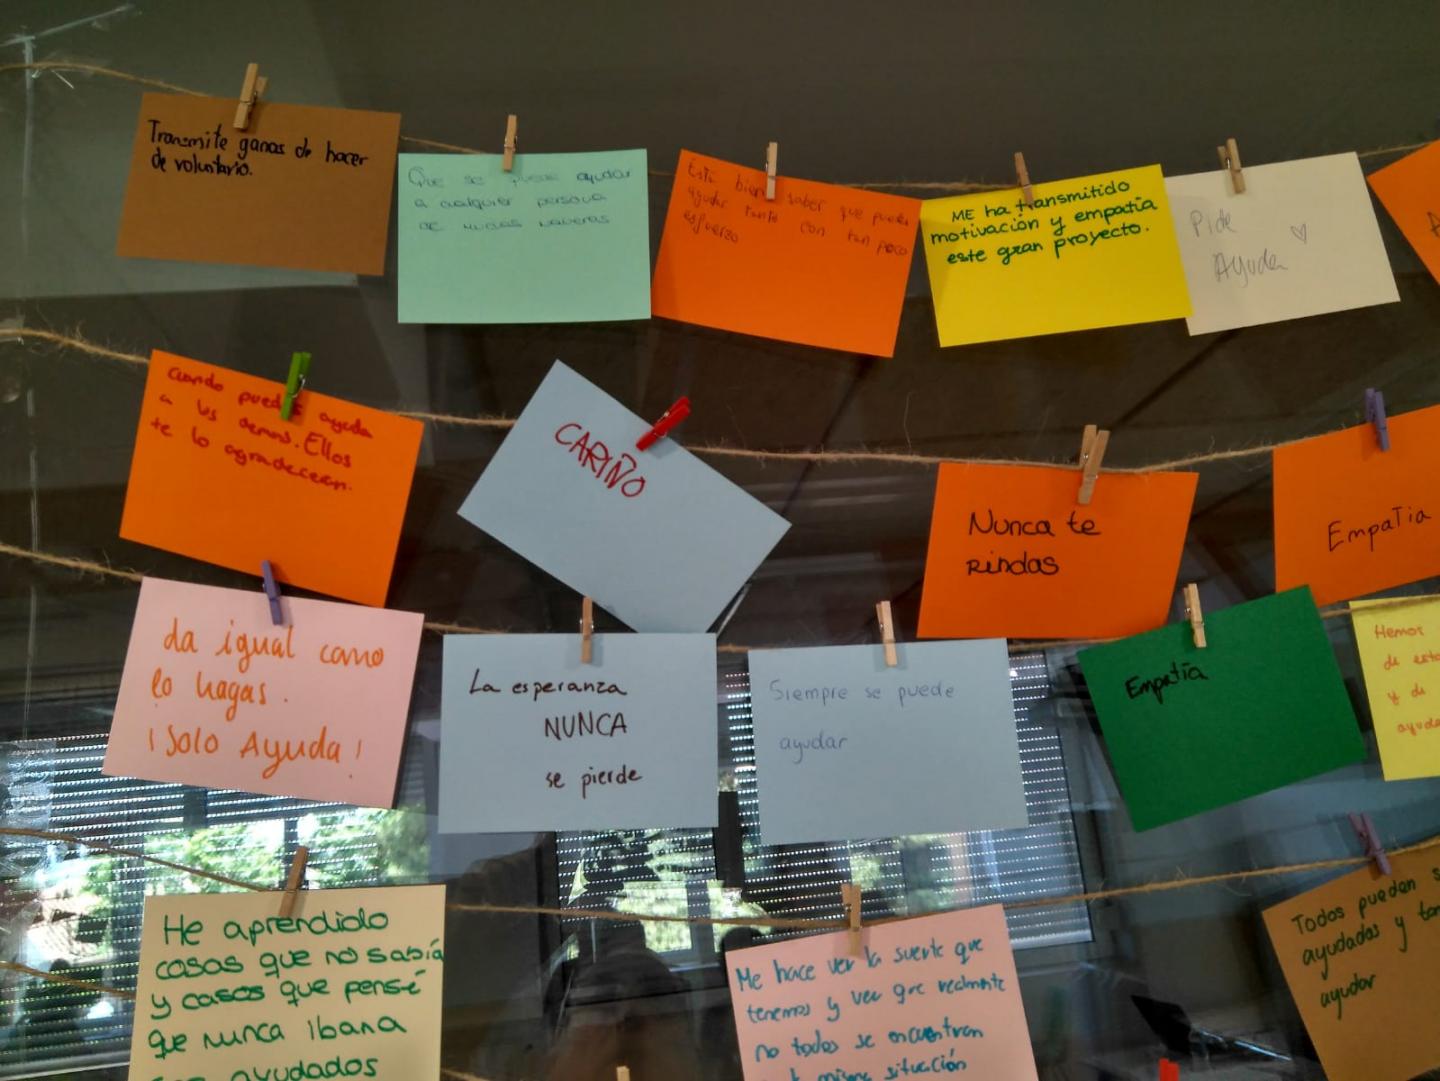 Transmite ganas de hacer
de voluntario.
Que se puede ayudar
a cualquier persona
de muchas maneras
Está bien saber que puedes
ayudar tanto con tan poco
esfuerzo
ME ha transmitido
motivación y empatía
este gran proyecto.
Pide
Ayuda
Cuando puedas ayuda
a los demas. Ellos
te lo agradeceran.
CARIÑO
Nunca te
rindas
Empatia
da igual como
lo hagas.
¡Solo Ayuda!
La esperanza
NUNCA
se pierde
Siempre se puede
ayudar
Empatía
Hemos
de
y de
He aprendido
cosas que no sabía
y cosas que pensé
que nunca ibana
ayudados
Me hace ver la suerte que
tenemos y ver que realmente
no todos se encuentran
misma situación
Todos pueden
ayudados y
ayudar